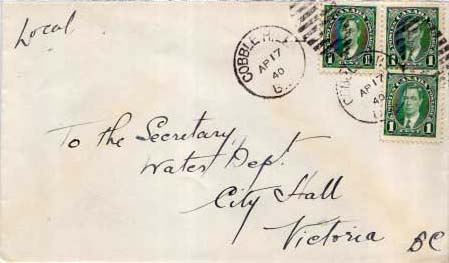 Local
COBBLE HILL
AP 17
40
B.C.
CANADA
1 1
CANADA
1 1
AP 17
40
CANADA
1 1
To the Secretary,
Water Dept.
City Hall
Victoria BC